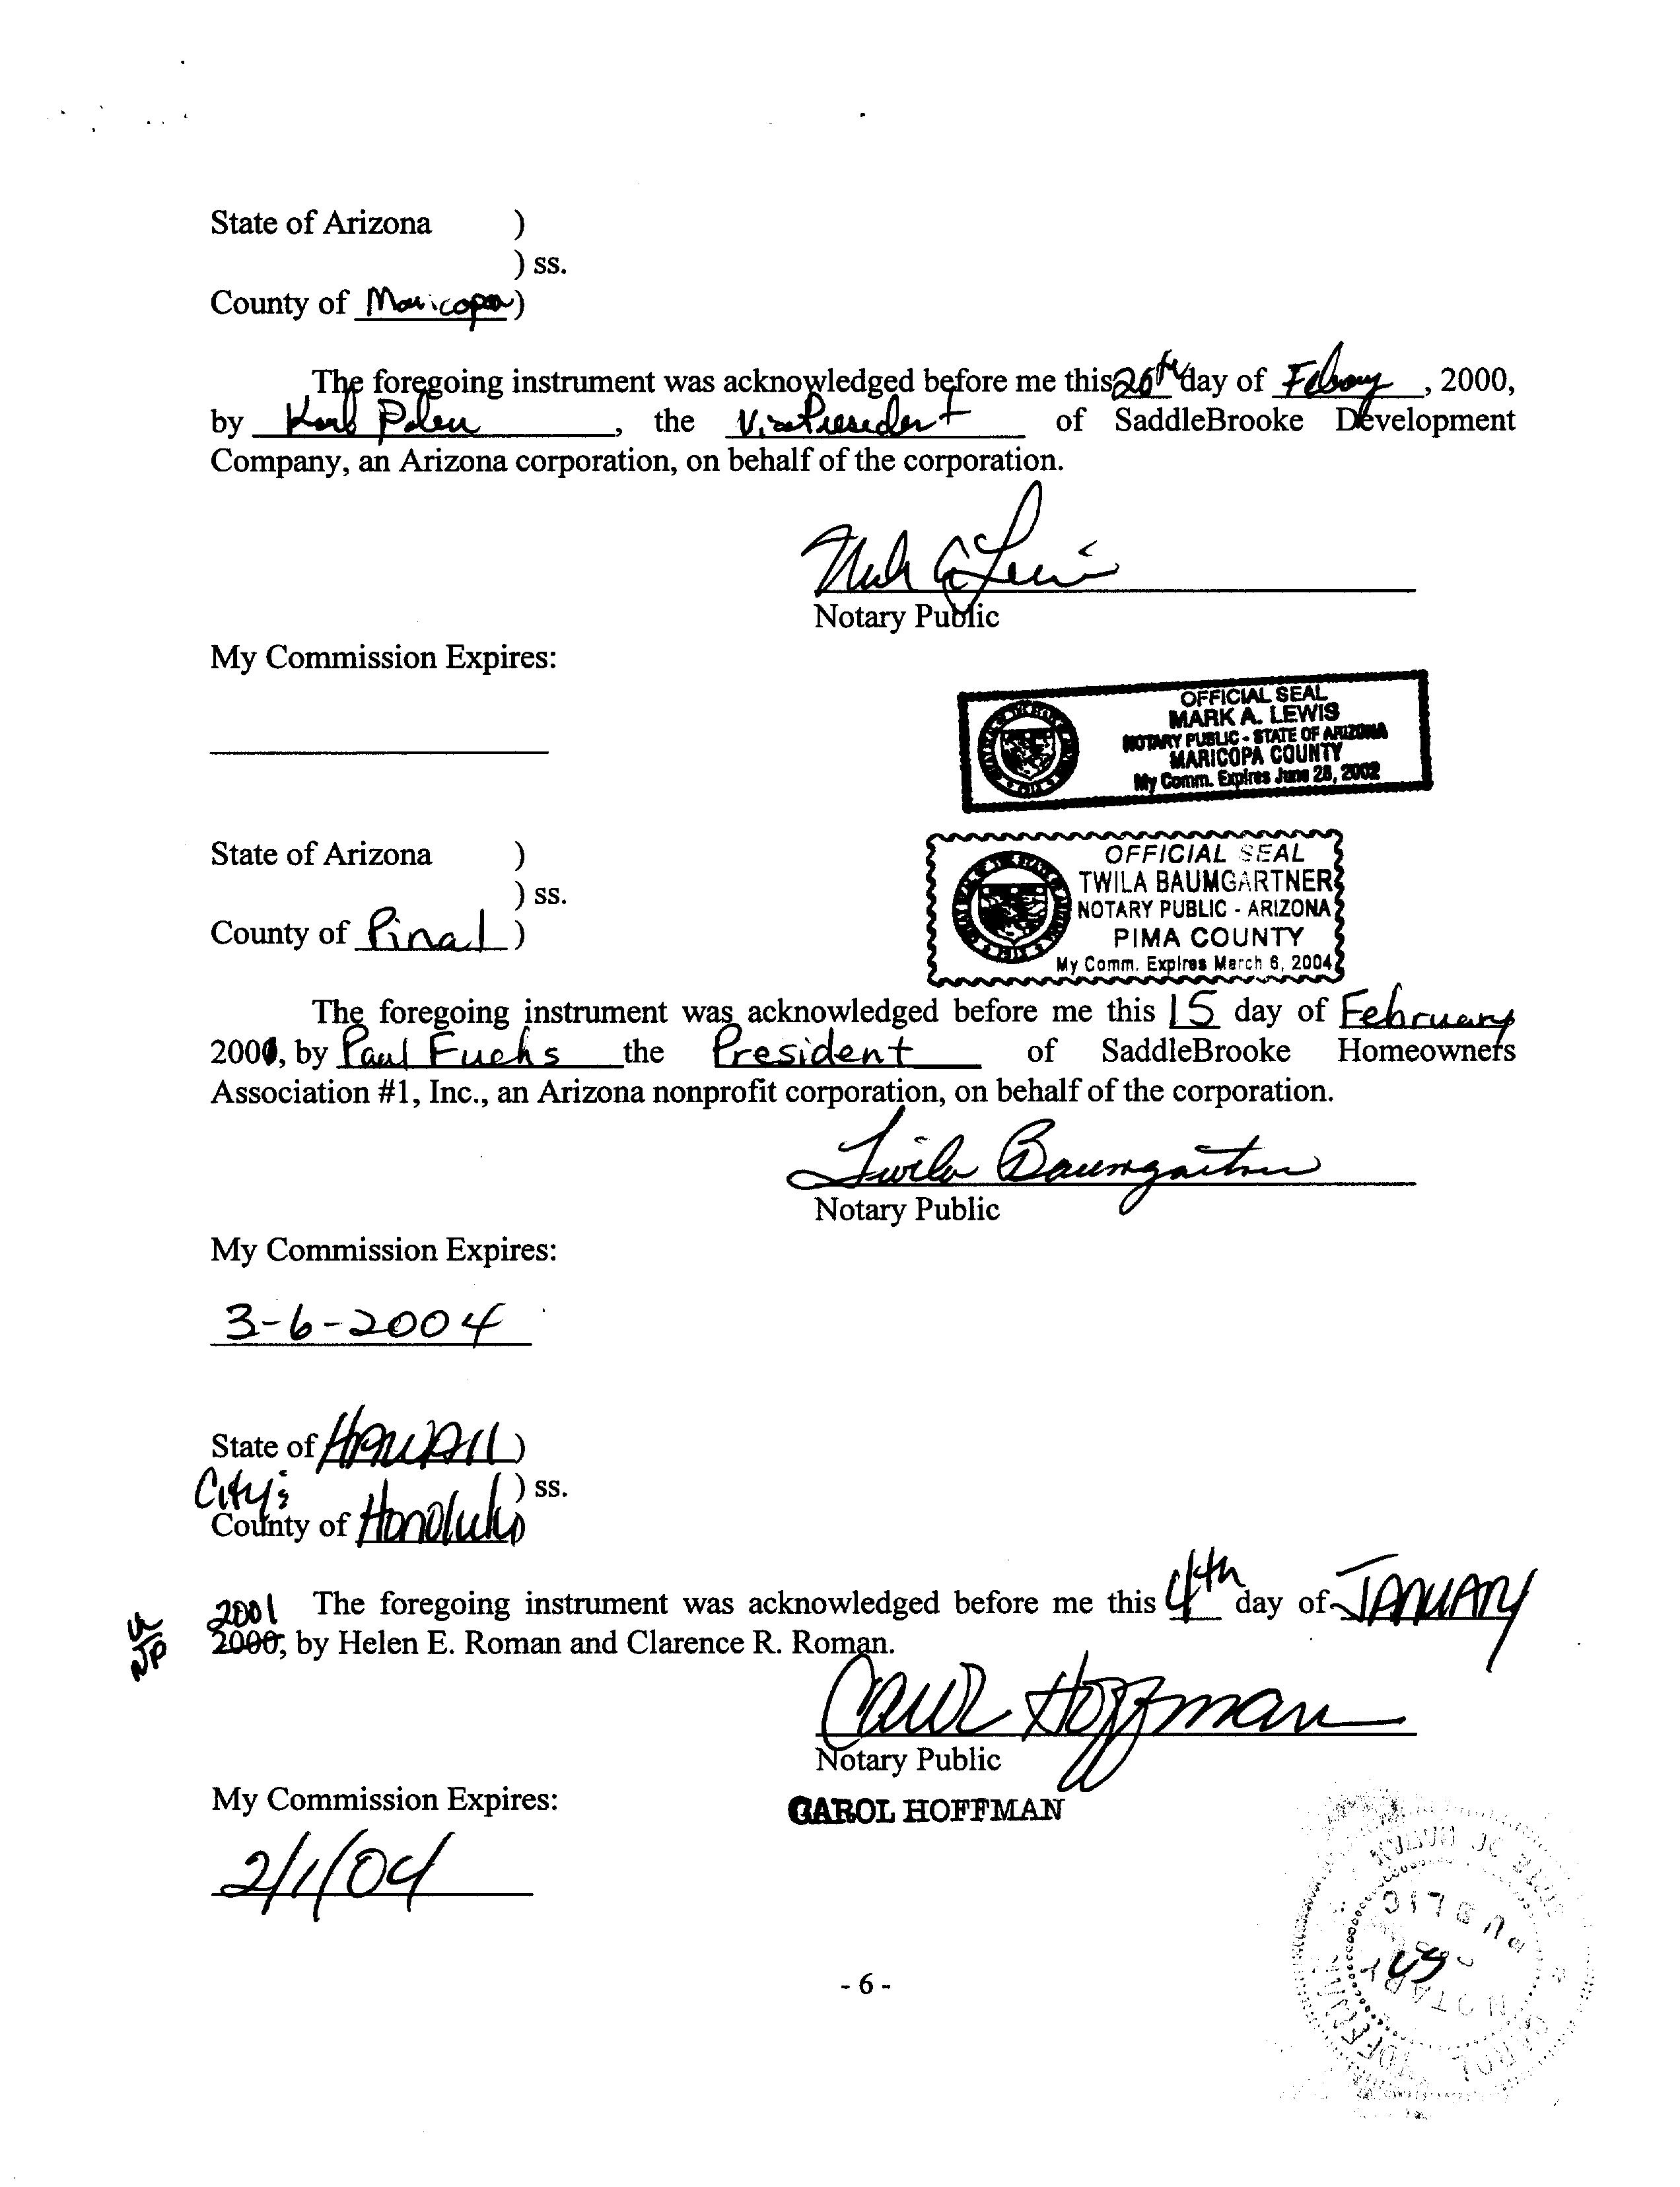 State of Arizona )
) ss.
County of Maricopa )
The foregoing instrument was acknowledged before me this 20th day of , 2000,
by Karl Polen , the Vice President of SaddleBrooke Development
Company, an Arizona corporation, on behalf of the corporation.
Mark A Lewis
Notary Public
My Commission Expires:
OFFICIAL SEAL
MARK A. LEWIS
NOTARY PUBLIC - STATE OF ARIZONA
MARICOPA COUNTY
My Comm. Expires June 28, 2002
State of Arizona )
) ss.
County of Pinal )
OFFICIAL SEAL
TWILA BAUMGARTNER
NOTARY PUBLIC - ARIZONA
PIMA COUNTY
My Comm. Expires March 6, 2004
The foregoing instrument was acknowledged before me this 15 day of February
2001, by Paul Fuchs the President of SaddleBrooke Homeowners
Association #1, Inc., an Arizona nonprofit corporation, on behalf of the corporation.
Twila Baumgartner
Notary Public
My Commission Expires:
3-6-2004
State of HAWAII )
City &
) ss.
County of Honolulu )
2001 The foregoing instrument was acknowledged before me this 4th day of JANUARY
2000, by Helen E. Roman and Clarence R. Roman.
Carol Hoffman
Notary Public
My Commission Expires:
CAROL HOFFMAN
2/1/04
NOTARY
PUBLIC
CAROL HOFFMAN
- 6 -